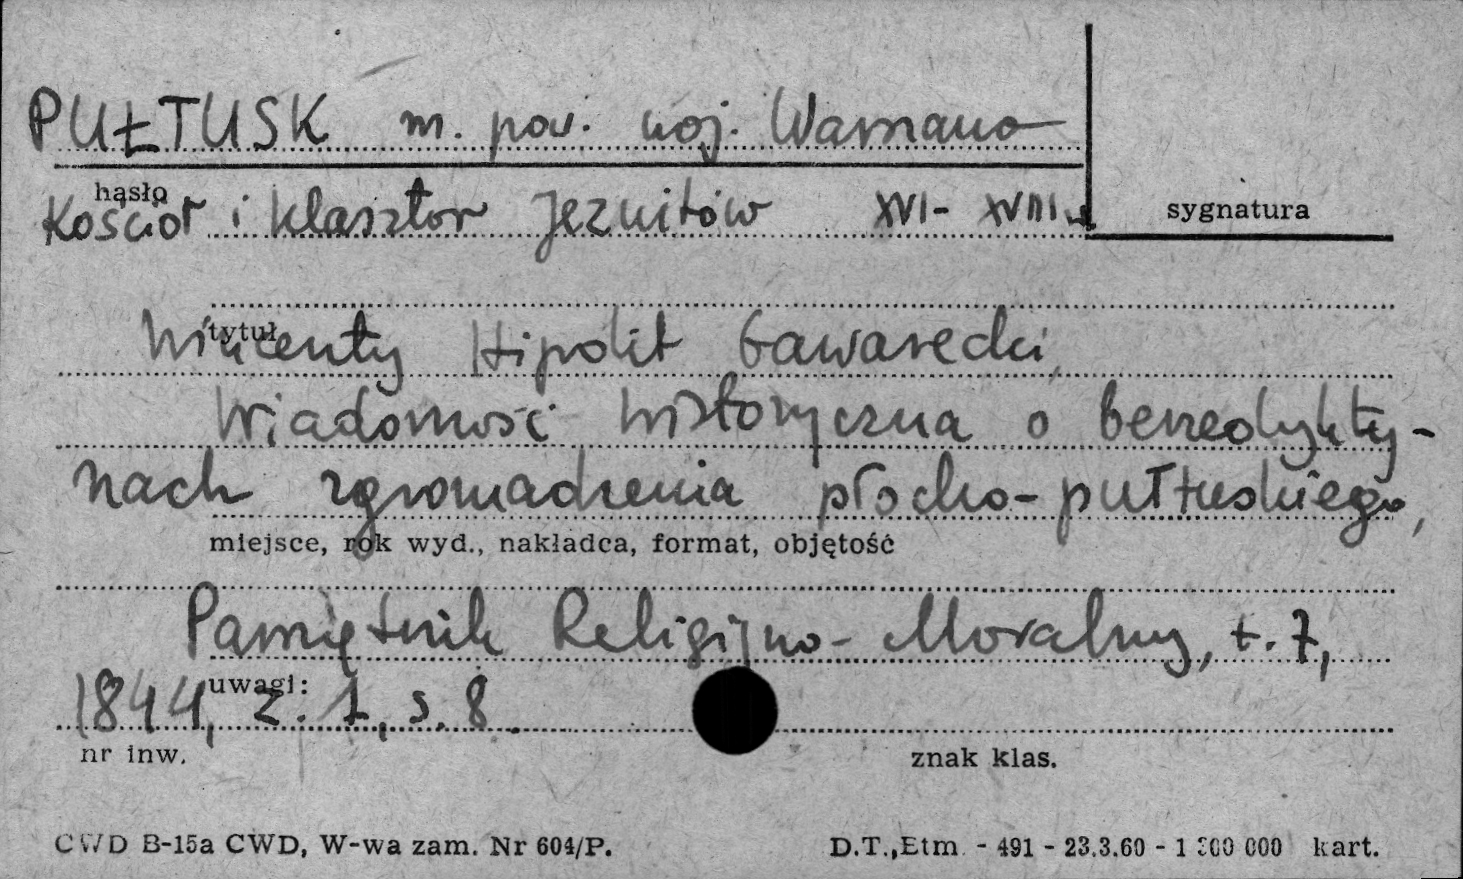 PUŁTUSK m. pow. woj. Warszawa
hasło
Kościół i klasztor Jezuitów XVI-XVIII w.
sygnatura
tytuł
Wincenty Hipolit Gawarecki,
Wiadomość historyczna o benedykty-
nach zgromadzenia płocko-pułtuskiego,
miejsce, rok wyd., nakładca, format, objętość
Pamiętnik Religijno-Moralny, t. 7,
uwagi:
1844, z. 1, s. 8.
nr inw. znak klas.
CWD B-15a CWD, W-wa zam. Nr 604/P. D.T.,Etm. - 491 - 23.3.60 - 1 300 000 kart.